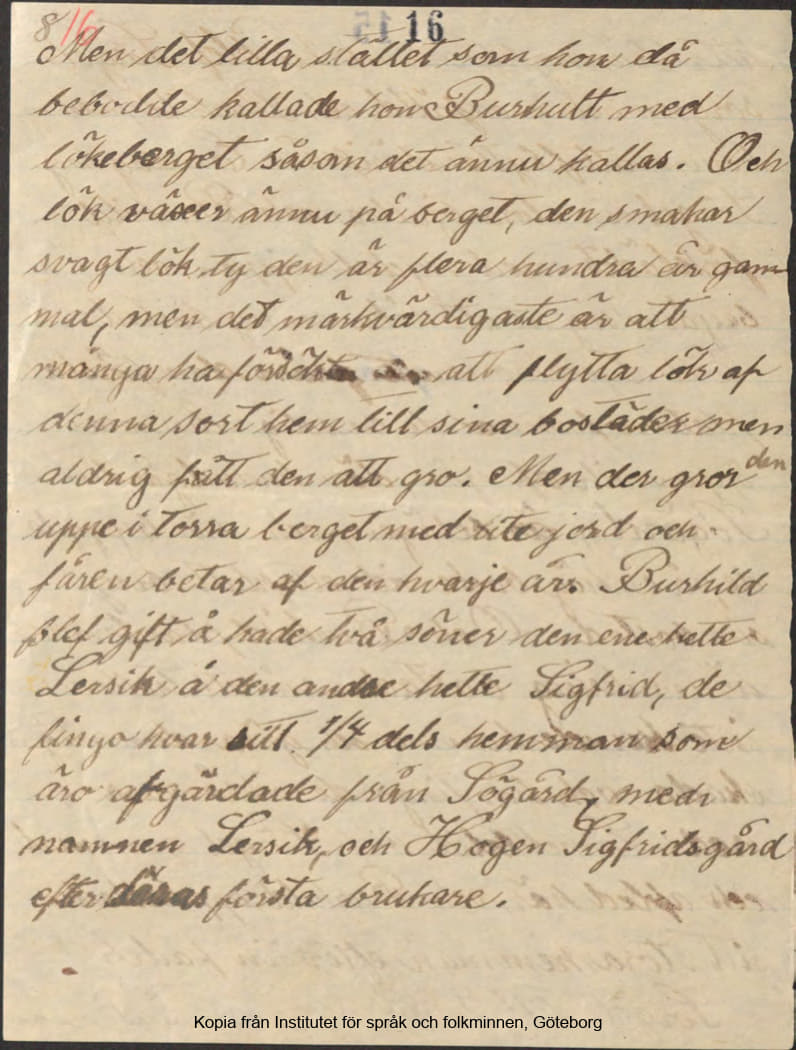 8 16 16
Men det lilla stället som hon då
bebodde kallade hon Burhult med
lökeberget såsom det ännu kallas. Och
lök växer ännu på berget, den smakar
svagt lök ty den är flera hundra år gam-
mal, men det märkvärdigaste är att
många ha försökt att flytta lök af
denna sort hem till sina bostäder men
aldrig fått den att gro. Men der gror den
uppe i torra berget med lite jord och
fåren betar af den hvarje år. Burhild
blef gift å hade två söner den ene hette
Lersik å den andre hette Sigfrid, de
fingo hvar sitt 1/4 dels hemman som
äro afgärdade från Sögård, med
namnen Lersik, och Hogen Sigfridsgård
efter deras första brukare.
Kopia från Institutet för språk och folkminnen, Göteborg